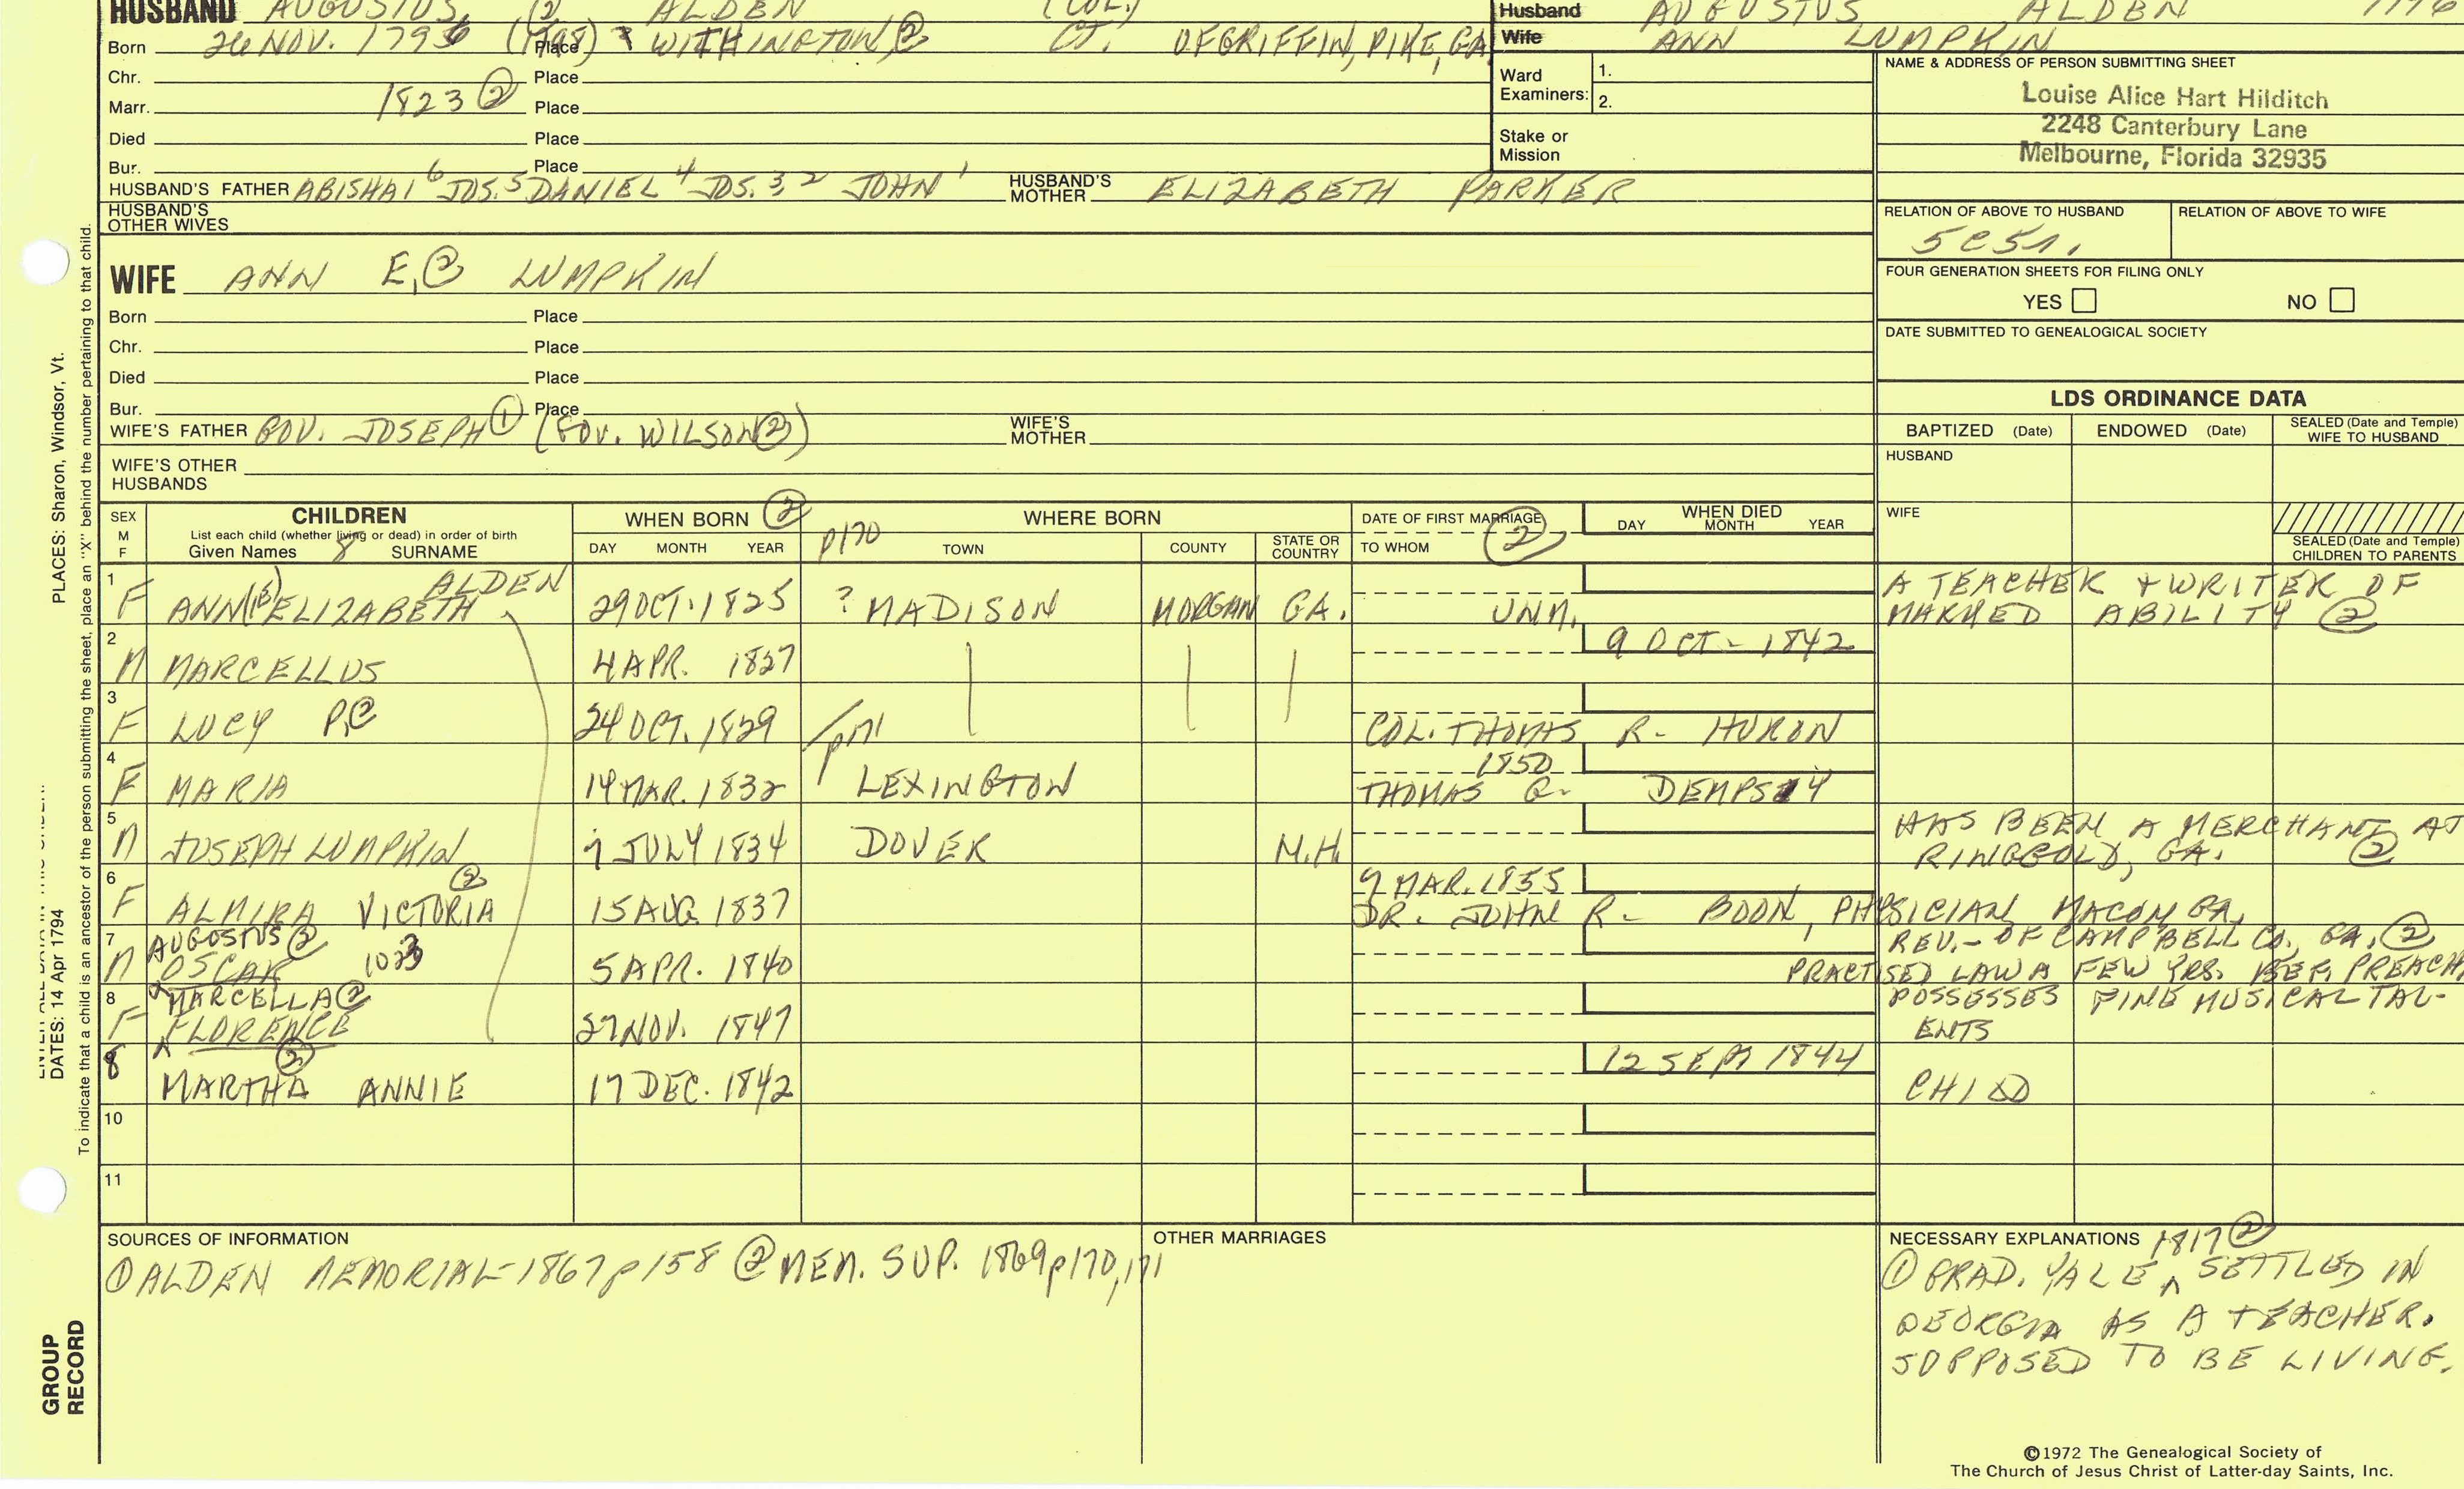 HUSBAND AUGUSTUS (2) ALDEN (COL.)
Born 26 NOV. 1796 (1798) Place ? WITHINGTON, ② CT. OF GRIFFIN, PIKE, GA.
Chr. Place
Marr. 1823 ② Place
Died Place
Bur. Place
HUSBAND'S FATHER ABISHAI 6 JOS. 5 DANIEL 4 JOS. 3, 2 JOHN 1 HUSBAND'S MOTHER ELIZABETH PARKER
HUSBAND'S OTHER WIVES
Husband AUGUSTUS ALDEN
Wife ANN LUMPKIN
Ward Examiners: 1.
2.
Stake or Mission
NAME & ADDRESS OF PERSON SUBMITTING SHEET
Louise Alice Hart Hilditch
2248 Canterbury Lane
Melbourne, Florida 32935
RELATION OF ABOVE TO HUSBAND RELATION OF ABOVE TO WIFE
5C5R.
FOUR GENERATION SHEETS FOR FILING ONLY
YES NO
DATE SUBMITTED TO GENEALOGICAL SOCIETY
WIFE ANN E. ② LUMPKIN
Born Place
Chr. Place
Died Place
Bur. Place
WIFE'S FATHER GOV. JOSEPH ① (GOV. WILSON ②) WIFE'S MOTHER
WIFE'S OTHER HUSBANDS
LDS ORDINANCE DATA
BAPTIZED (Date) ENDOWED (Date) SEALED (Date and Temple) WIFE TO HUSBAND
HUSBAND
WIFE
SEALED (Date and Temple) CHILDREN TO PARENTS
SEX M F
CHILDREN
List each child (whether living or dead) in order of birth
Given Names 8 SURNAME
WHEN BORN ②
DAY MONTH YEAR
p170 WHERE BORN
TOWN COUNTY STATE OR COUNTRY
DATE OF FIRST MARRIAGE ②
TO WHOM
WHEN DIED
DAY MONTH YEAR
1 F ANN(E) ELIZABETH ALDEN 29 OCT. 1825 ? MADISON MORGAN GA. UNM. A TEACHER + WRITER OF MARKED ABILITY ②
2 M MARCELLUS 4 APR. 1827 9 OCT - 1842
3 F LUCY P. ② 24 OCT. 1829 COL. THOMAS R. HURON
4 F MARIA 14 MAR. 1832 p171 LEXINGTON 1850 THOMAS Q. DEMPSEY
5 M JOSEPH LUMPKIN 7 JULY 1834 DOVER N.H. HAS BEEN A MERCHANT AT RINGGOLD, GA. ②
6 F ALMIRA VICTORIA ② 15 AUG. 1837 9 MAR. 1855 DR. JOHN R. BOON, PHYSICIAN, MACON GA.
7 M AUGUSTUS ② OSCAR 1023 5 APR. 1840 REV. - OF CAMPBELL CO., GA. ② PRACTISED LAW A FEW YRS. BEF. PREACH
8 F MARCELLA ② FLORENCE 27 NOV. 1847 POSSESSES FINE MUSICAL TALENTS
8 MARTHA ② ANNIE 17 DEC. 1842 12 SEPT 1844 CHILD
10
11
SOURCES OF INFORMATION
① ALDEN MEMORIAL - 1867 p158 ② MEM. SUP. 1869 p170, 171
OTHER MARRIAGES
NECESSARY EXPLANATIONS 1817 ②
① GRAD. YALE ^ SETTLED IN
GEORGIA AS A TEACHER.
SUPPOSED TO BE LIVING.
©1972 The Genealogical Society of
The Church of Jesus Christ of Latter-day Saints, Inc.
PLACES: Sharon, Windsor, Vt.
To indicate that a child is an ancestor of the person submitting the sheet, place an "X" behind the number pertaining to that child.
DATES: 14 Apr 1794
GROUP RECORD